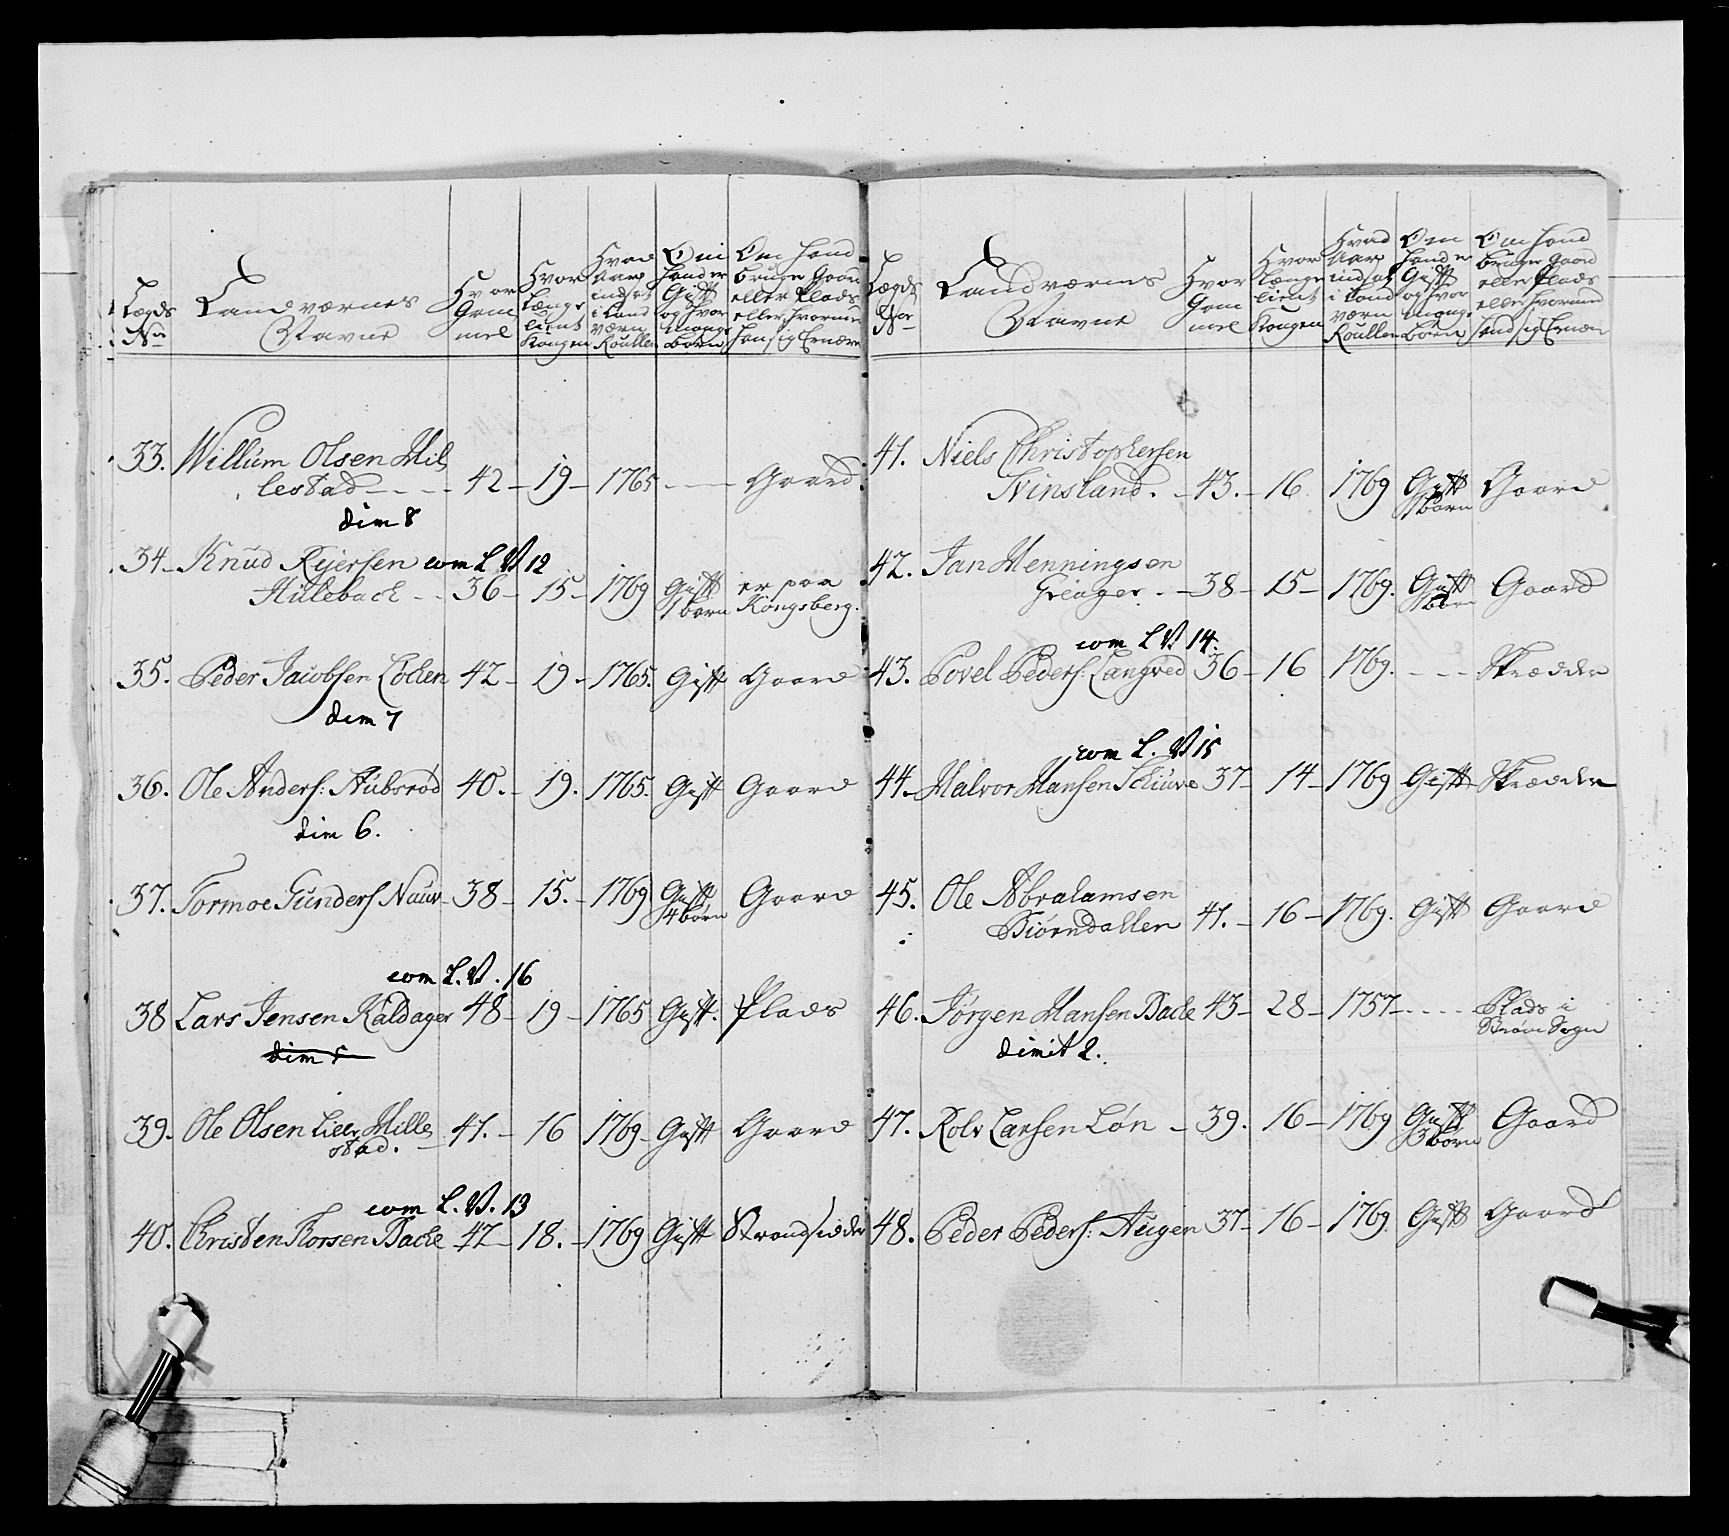 Lægds No
Landværnes Navne
Hvor Gammel
Hvor længe tient Kongen
Hvad Aar indsat i Landværn Roullen
Om Hand er Gift og hvor mange børn
Om Hand bruger Gaard eller Plads eller hvormed Han sig Ernærer
33. Willum Olsen Mil
lestad - - - 42 - 19 - 1765 - - - Gaard
dim 8
34 - Knud Rejersen com L V 12
Hillebach - - 36 - 15 - 1769 Gift 1 børn er paa Kongsberg.
35. Peder Jacobsen Lölien 42 - 19 - 1765. Gift Gaard
dim 7
36. Ole Anders: Aubsröd 40. - 19. 1765. Gift Gaard
dim 6.
37. Tormoe Gunders Nauv - 38 - 15. - 1769 Gift 4 børn Gaard
com L. V. 16
38 Lars Jensen Kaldager 48 - 19 - 1765 Gift. Plads
dim 5
39. Ole Olsen Lier Mille
stad. - 41. - 16 1769 - Gift Gaard
com L. V. 13
40. Christen Thorsen Bache 42 - 18. - 1769 Gift Strandsidder
Lægds No
Landværnes Navne
Hvor Gammel
Hvor længe tient Kongen
Hvad Aar indsat i Landværn Roullen
Om Hand er Gift og hvor mange børn
Om Hand bruger Gaard eller Plads eller hvormed Hand sig Ernær
41. Niels Christophersen
Svinsland. - 43. - 16 1769 Gift 1 børn Gaard
42. Jan Henningsen
Grieager. - - 38 - 15 - 1769. Gift Gaard
com L V 14.
43. Povel Peders: Langved 36 - 16 1769. - - - Skrædder
com L. V 15
44 - Halvor Hansen Schiuve 37 - 14 - 1769 Gift Skrædder
45. Ole Abrahamsen
Biörndallen 41. - 16 - 1769. Gift Gaard
46. Jörgen Hansen Bache 43 - 28 - 1757 - - - - Plads i
Sogn
dimit 2.
47. Rolv Larsen Lön - 39. 16 - 1769 Gift 3 børn Gaard
48. Peder Peders: Augen 37 - 16 - 1769. Gift Gaard